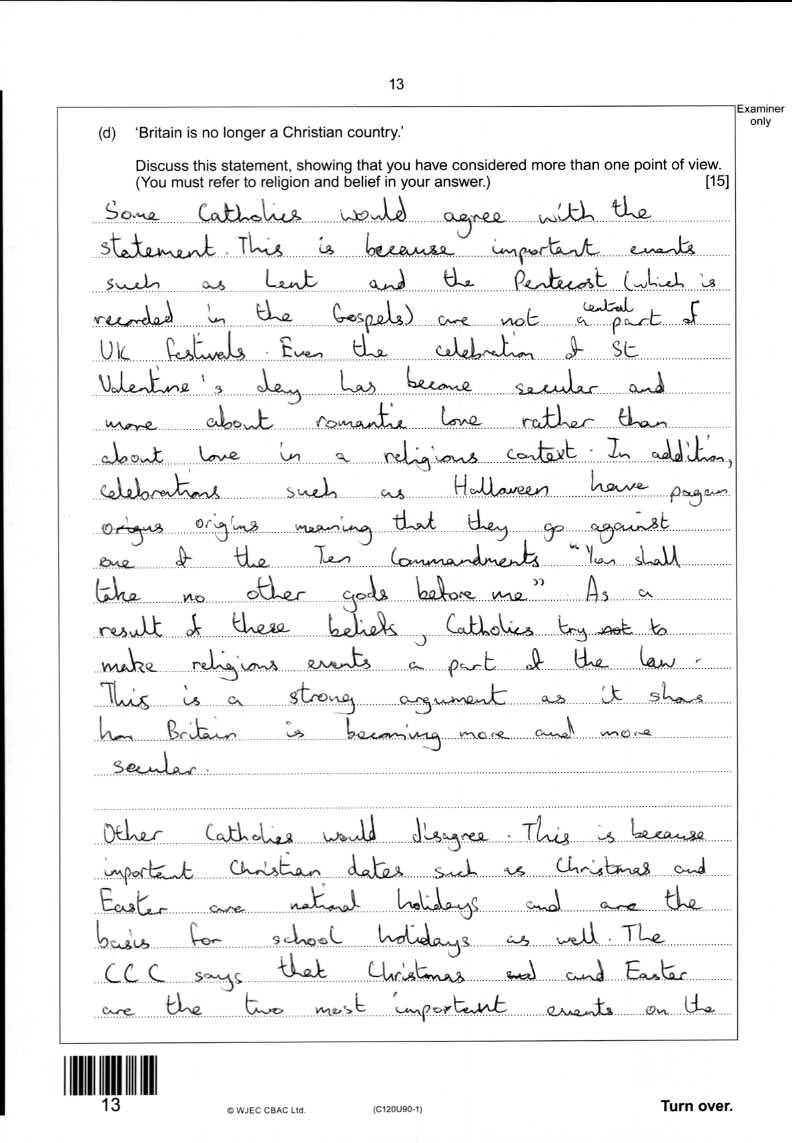 13
Examiner
only
(d) 'Britain is no longer a Christian country.'
Discuss this statement, showing that you have considered more than one point of view.
(You must refer to religion and belief in your answer.) [15]
Some Catholics would agree with the
statement. This is because important events
such as Lent and the Pentecost (which is
recorded in the Gospels) are not a central part of
UK festivals. Even the celebration of St
Valentine's day has become secular and
more about romantic love rather than
about love in a religious context. In addition,
celebrations such as Halloween have pagan
origins meaning that they go against
one of the Ten Commandments "You shall
take no other gods before me" As a
result of these beliefs, Catholics try not to
make religious events a part of the law.
This is a strong argument as it shows
how Britain is becoming more and more
secular.
Other Catholics would disagree. This is because
important Christian dates such as Christmas and
Easter are national holidays and are the
basis for school holidays as well. The
CCC says that Christmas and Easter
are the two most important events on the
13
© WJEC CBAC Ltd.
(C120U90-1)
Turn over.